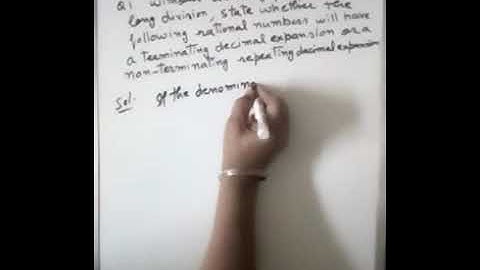 Q1 Without
long division, state whether the
following rational numbers will have
a terminating decimal expansion or a
non-terminating repeating decimal expansion
Sol. If the denomina